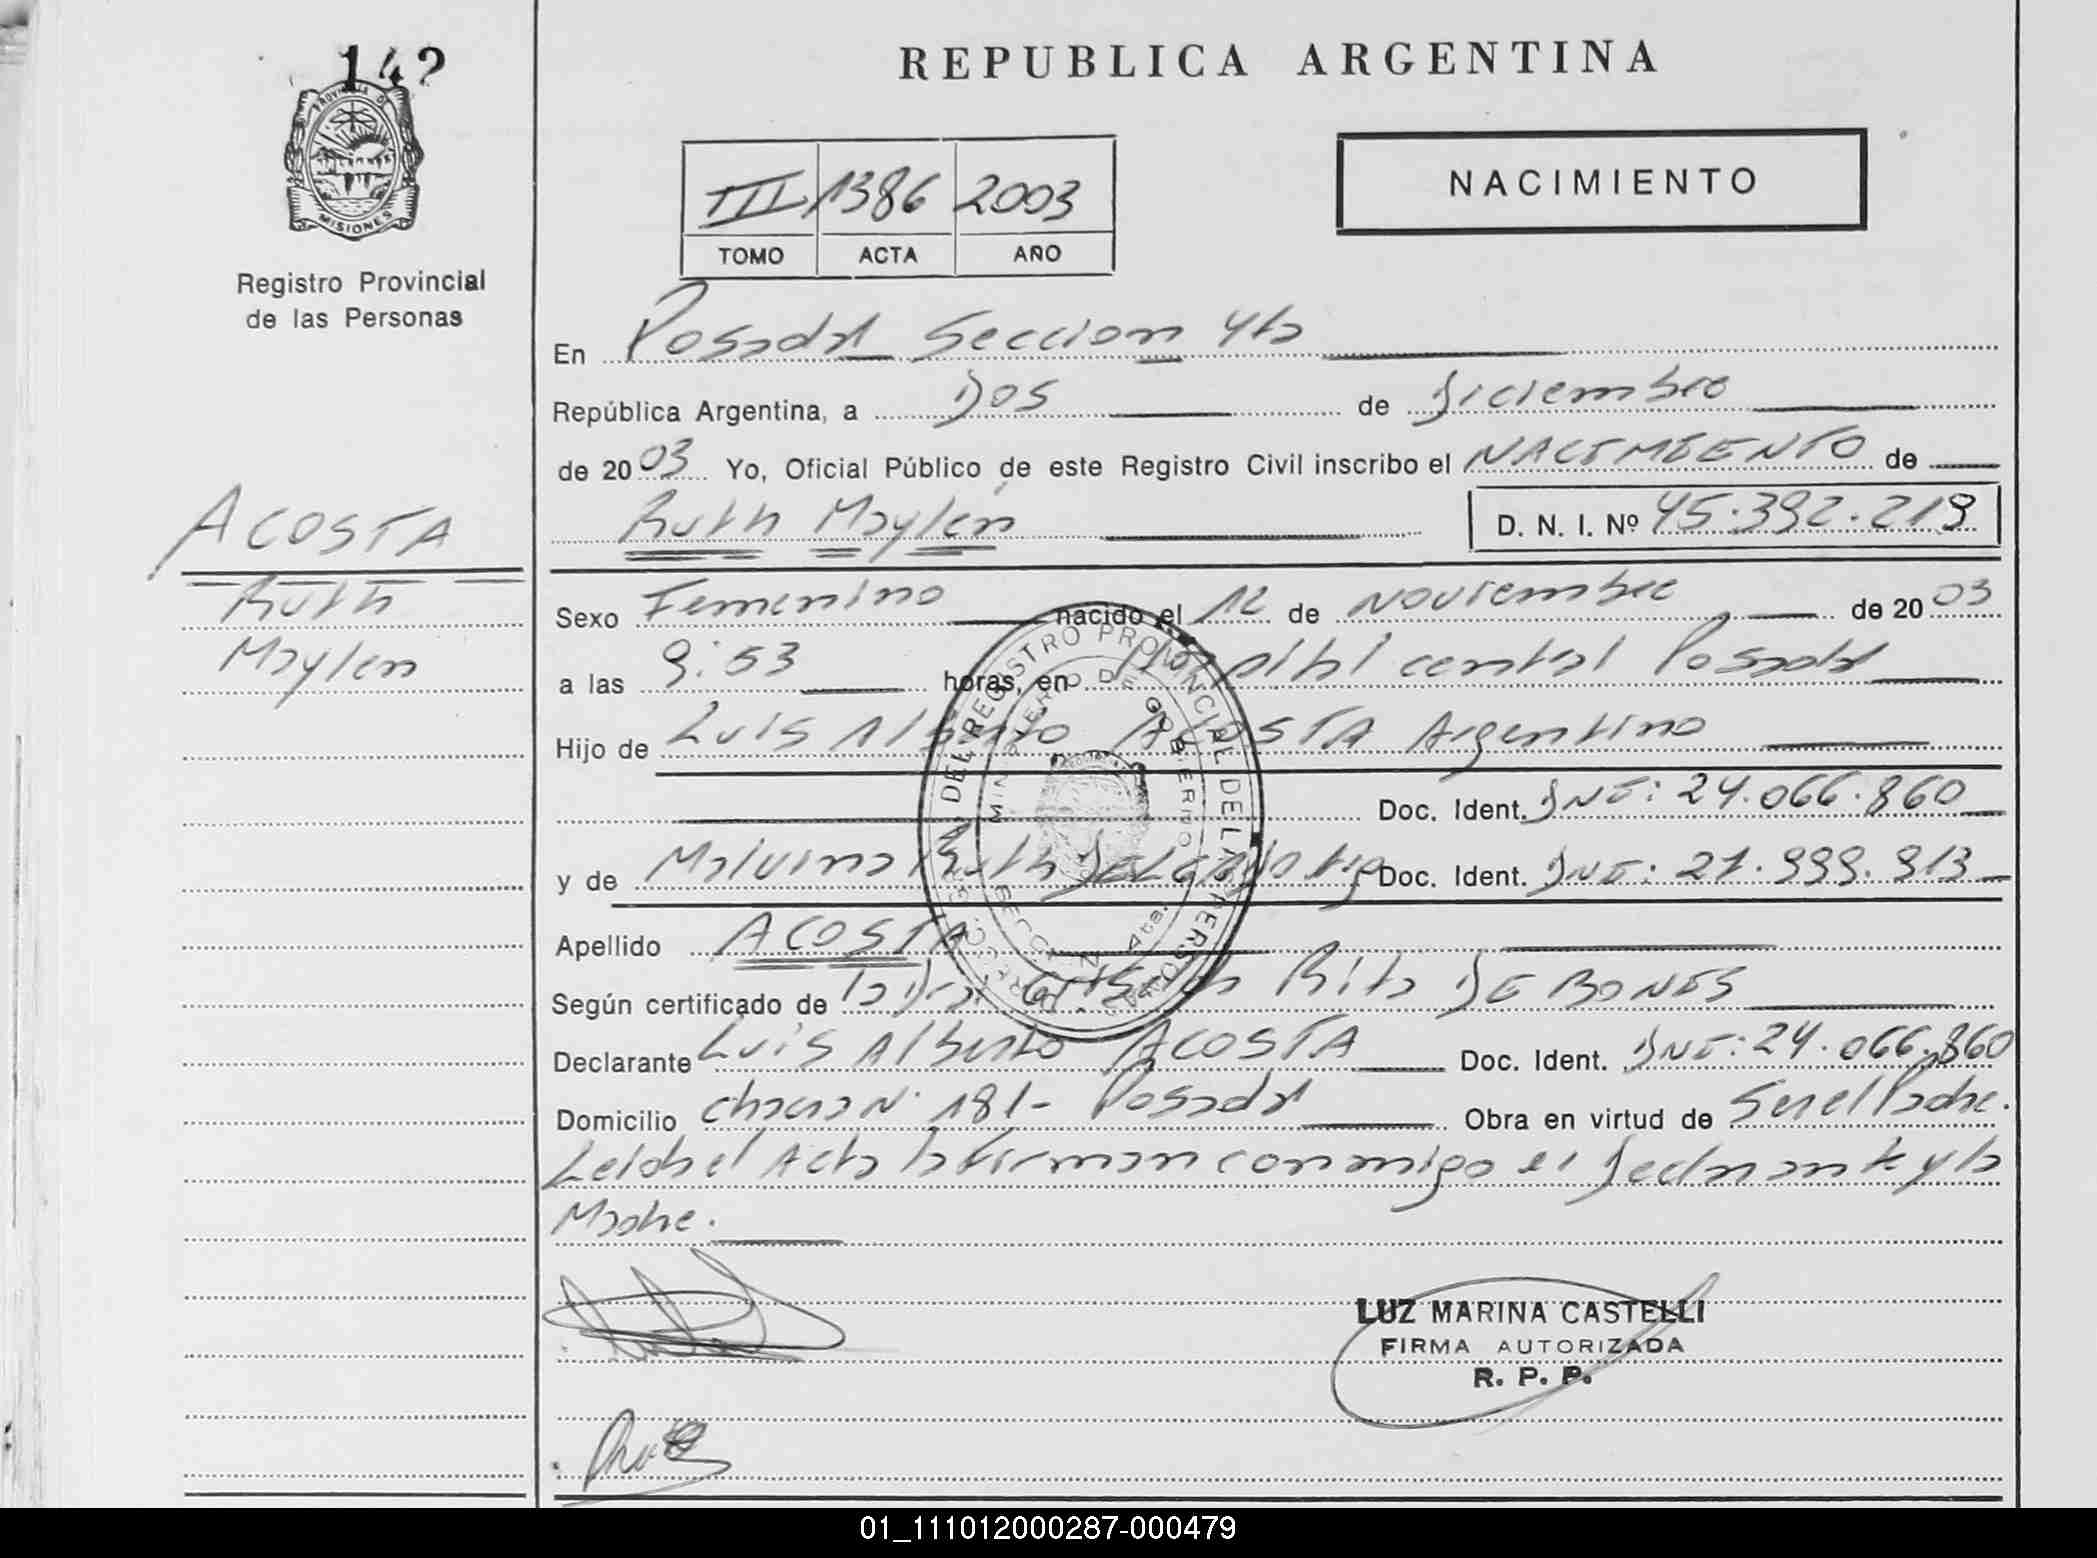 142
REPUBLICA ARGENTINA
PROVINCIA DE
MISIONES
Registro Provincial
de las Personas
III 1386 2003
TOMO ACTA AÑO
NACIMIENTO
En Posadas Seccion 4ta
República Argentina, a Dos de Diciembre
de 2003 Yo, Oficial Público de este Registro Civil inscribo el NACIMIENTO de
Ruth Maylen D. N. I. Nº 45.392.219
ACOSTA
Ruth
Maylen
Sexo Femenino nacido el 12 de Noviembre de 2003
a las 9:53 horas, en Hospital central Posadas
Hijo de Luis Alberto ACOSTA Argentino
Doc. Ident. DNI: 24.066.860
y de Malvina Ruth Doc. Ident. DNI: 21.999.913
Apellido ACOSTA
Según certificado de la Dra Rita DE BONES
Declarante Luis Alberto ACOSTA Doc. Ident. DNI: 24.066.860
Domicilio chacra N° 181- Posadas Obra en virtud de Ser el Padre.
Leida el Acta la firman conmigo el Declarante y la
Madre.
REGISTRO PROVINCIAL DE LAS PERSONAS
MINISTERIO DE GOBIERNO
LUZ MARINA CASTELLI
FIRMA AUTORIZADA
R. P. P.
01_111012000287-000479